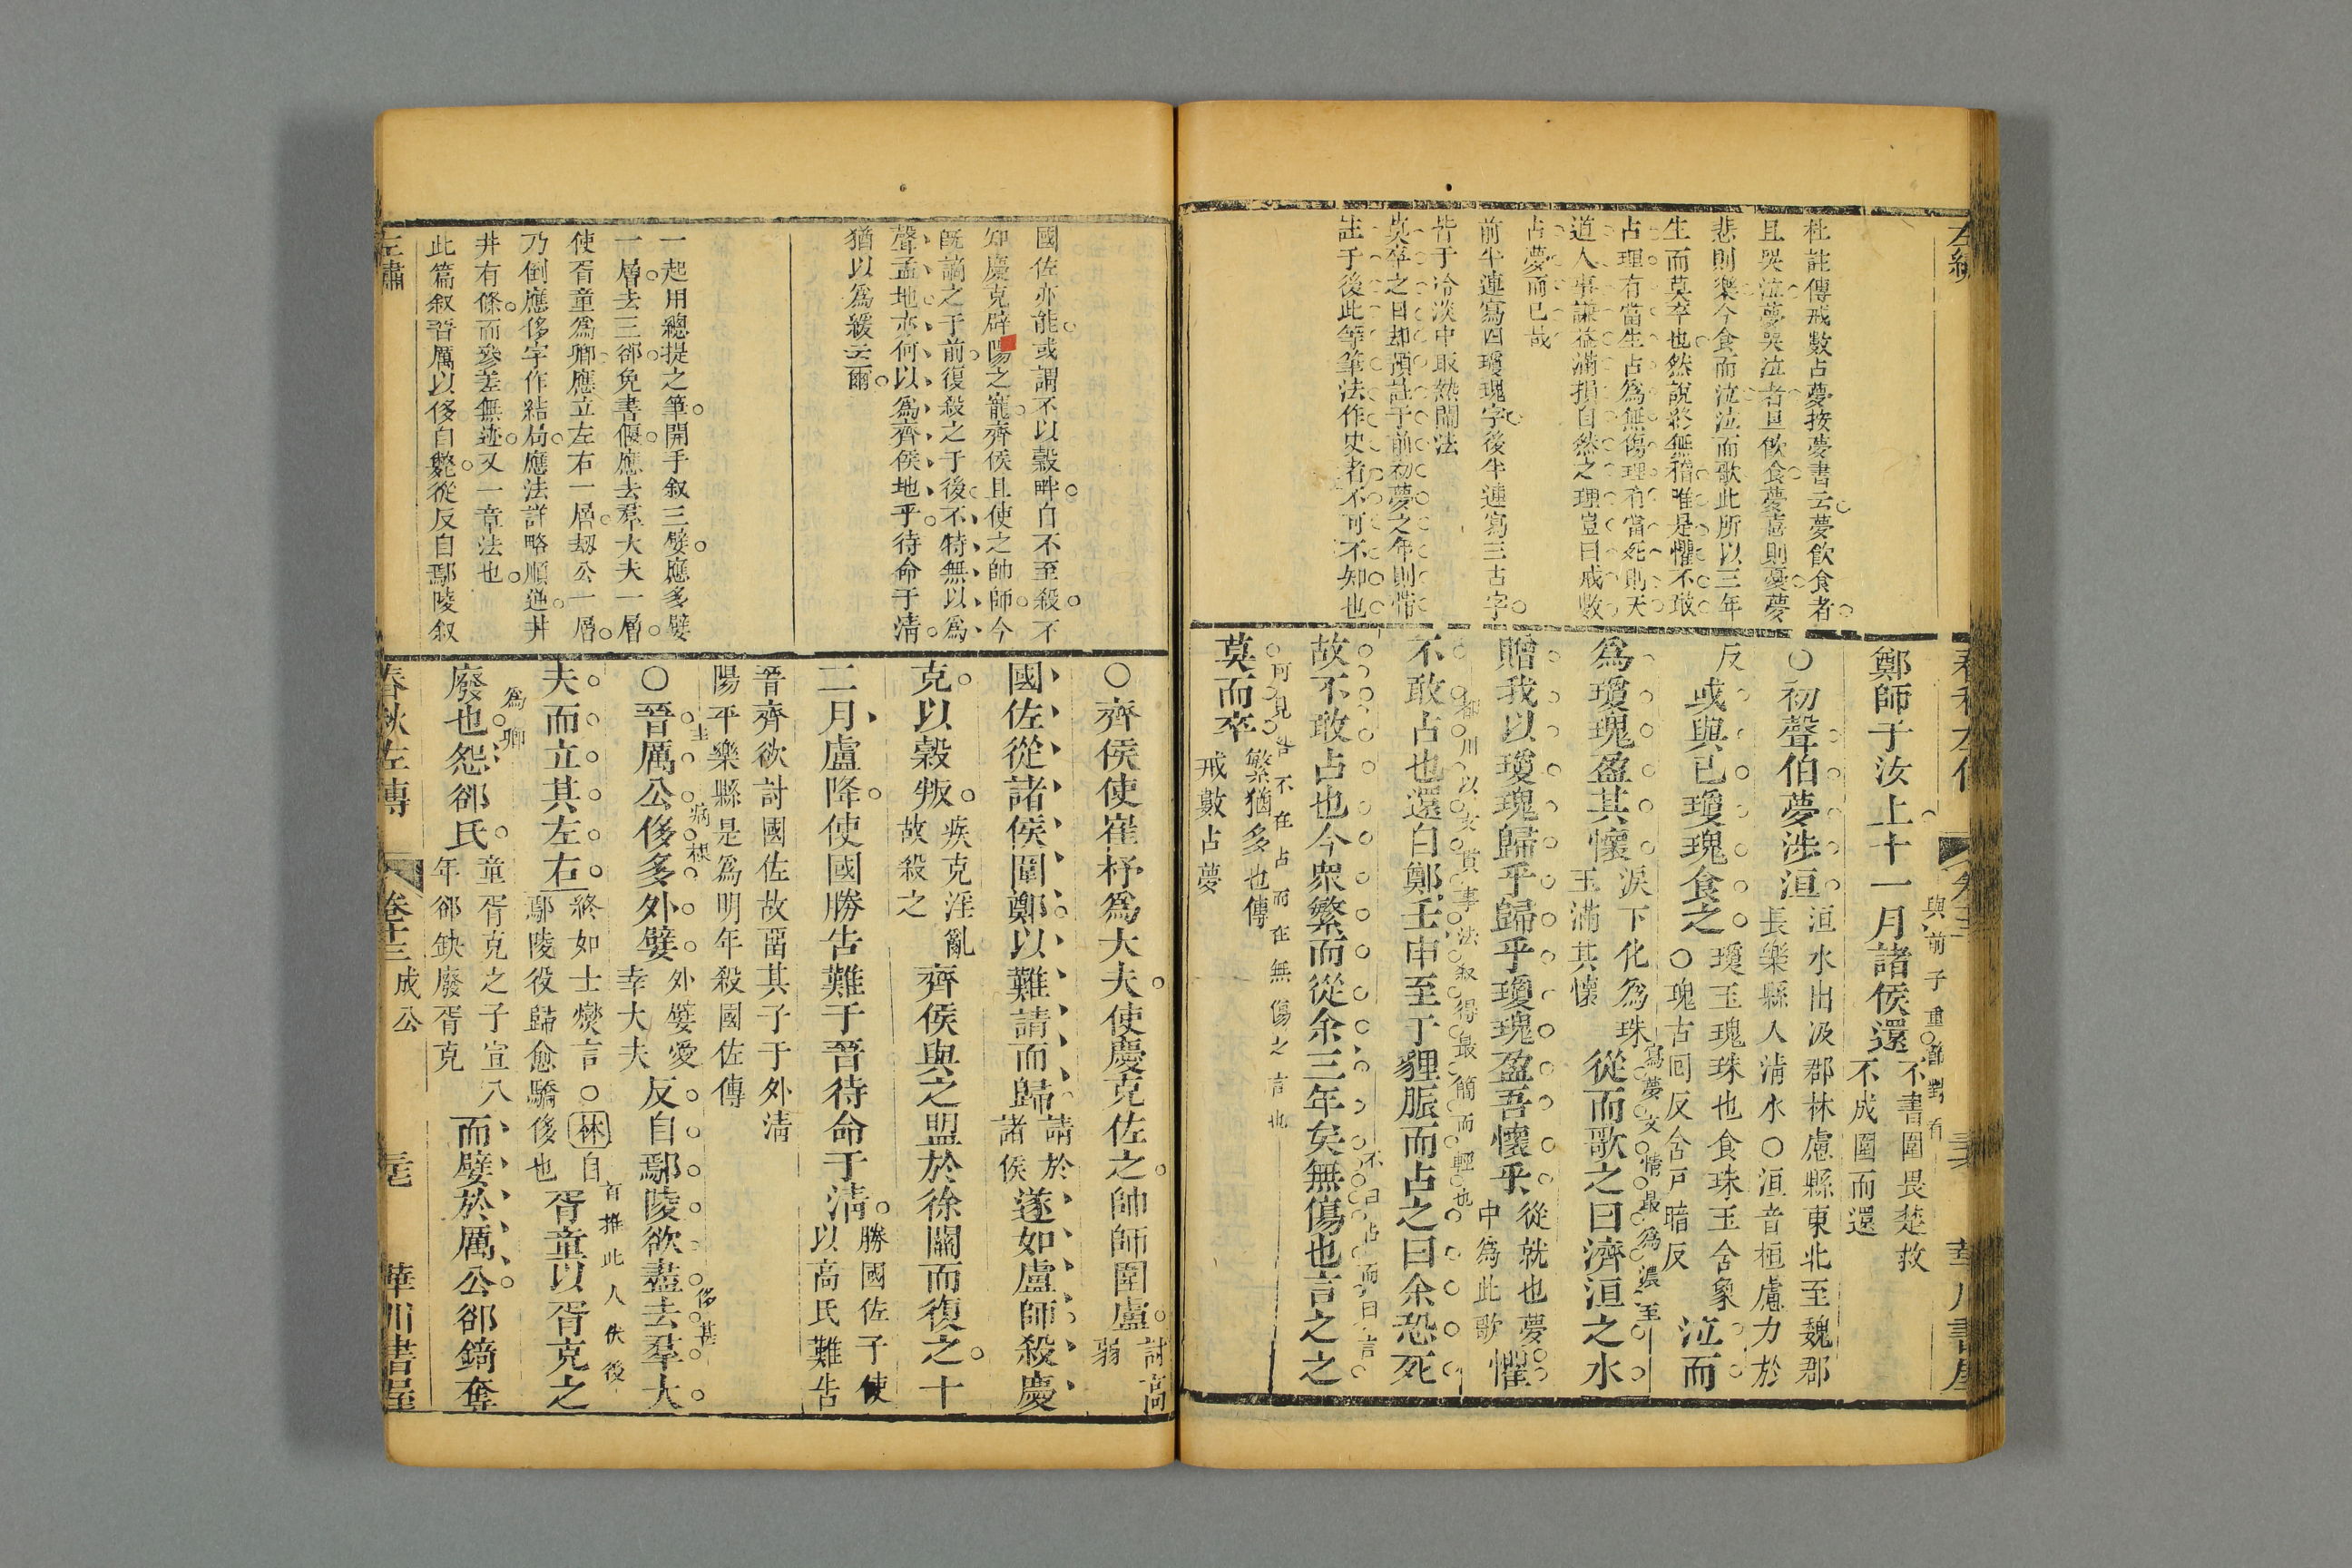 左繡
杜註傳戒數占夢按夢書云夢飲食者
且哭泣夢哭泣者且飲食夢喜則憂夢
悲則樂今食而泣泣而歌此所以三年
生而莫卒也然說終無稽唯是懼不敢
占理有當生占爲無傷理有當死則天
道人事謙益滿損自然之理豈曰戒數
占夢而已哉
前半連寫四瓊瑰字後半連寫三占字
皆于冷淡中取熱鬧法
莫卒之日却預註于前初夢之年則帶
註于後此等筆法作史者不可不知也
春秋左傳
鄭師于汝上十一月諸侯還不書圍畏楚救
不成圍而還
與前子重節對看
○初聲伯夢涉洹洹水出汲郡林慮縣東北至魏郡
長樂縣入淸水○洹音桓慮力於
反或與己瓊瑰食之瓊玉瑰珠也食珠玉含象
○瑰古回反含戸暗反泣而
爲瓊瑰盈其懷淚下化爲珠
玉滿其懷從而歌之曰濟洹之水
寫夢文情最爲濃至
贈我以瓊瑰歸乎歸乎瓊瑰盈吾懷乎從就也夢
中爲此歌懼
不敢占也還自鄭壬申至于貍脤而占之曰余恐死
故不敢占也今衆繁而從余三年矣無傷也言之之
不曰占而曰言
莫而卒繁猶多也傳
戒數占夢
可見皆不在占而在無傷之言也
華川書屋
國佐亦能或謂不以穀畔白不至殺不
知慶克辟陽之寵齊侯且使之帥師今
旣謫之于前復殺之于後不特無以爲
聲孟地亦何以爲齊侯地乎待命于淸
猶以爲緩云爾
一起用總提之筆開手叙三嬖應多嬖
一層去三郤免書偃應去羣大夫一層
使胥童爲卿應立左右一層刼公一層
乃倒應侈字作結局應法詳略順逆井
井有條而參差無迹又一章法也
此篇叙晉厲以侈自斃從反自鄢陵叙
左繡
○齊侯使崔杼爲大夫使慶克佐之帥師圍盧討高
弱
國佐從諸侯圍鄭以難請而歸請於
諸侯遂如盧師殺慶
克以穀叛疾克淫亂
故殺之齊侯與之盟於徐關而復之十
二月盧降使國勝告難于晉待命于淸勝國佐子使
以高氏難告
晉齊欲討國佐故畱其子于外淸
陽平樂縣是爲明年殺國佐傳
○晉厲公侈多外嬖外嬖愛
幸大夫反自鄢陵欲盡去羣大
夫而立其左右終如士燮言○林自
鄢陵役歸愈驕侈也胥童以胥克之
廢也怨郤氏童胥克之子宣八
年郤缺廢胥克而嬖於厲公郤錡奪
春秋左傳
卷十三
成公
華川書屋